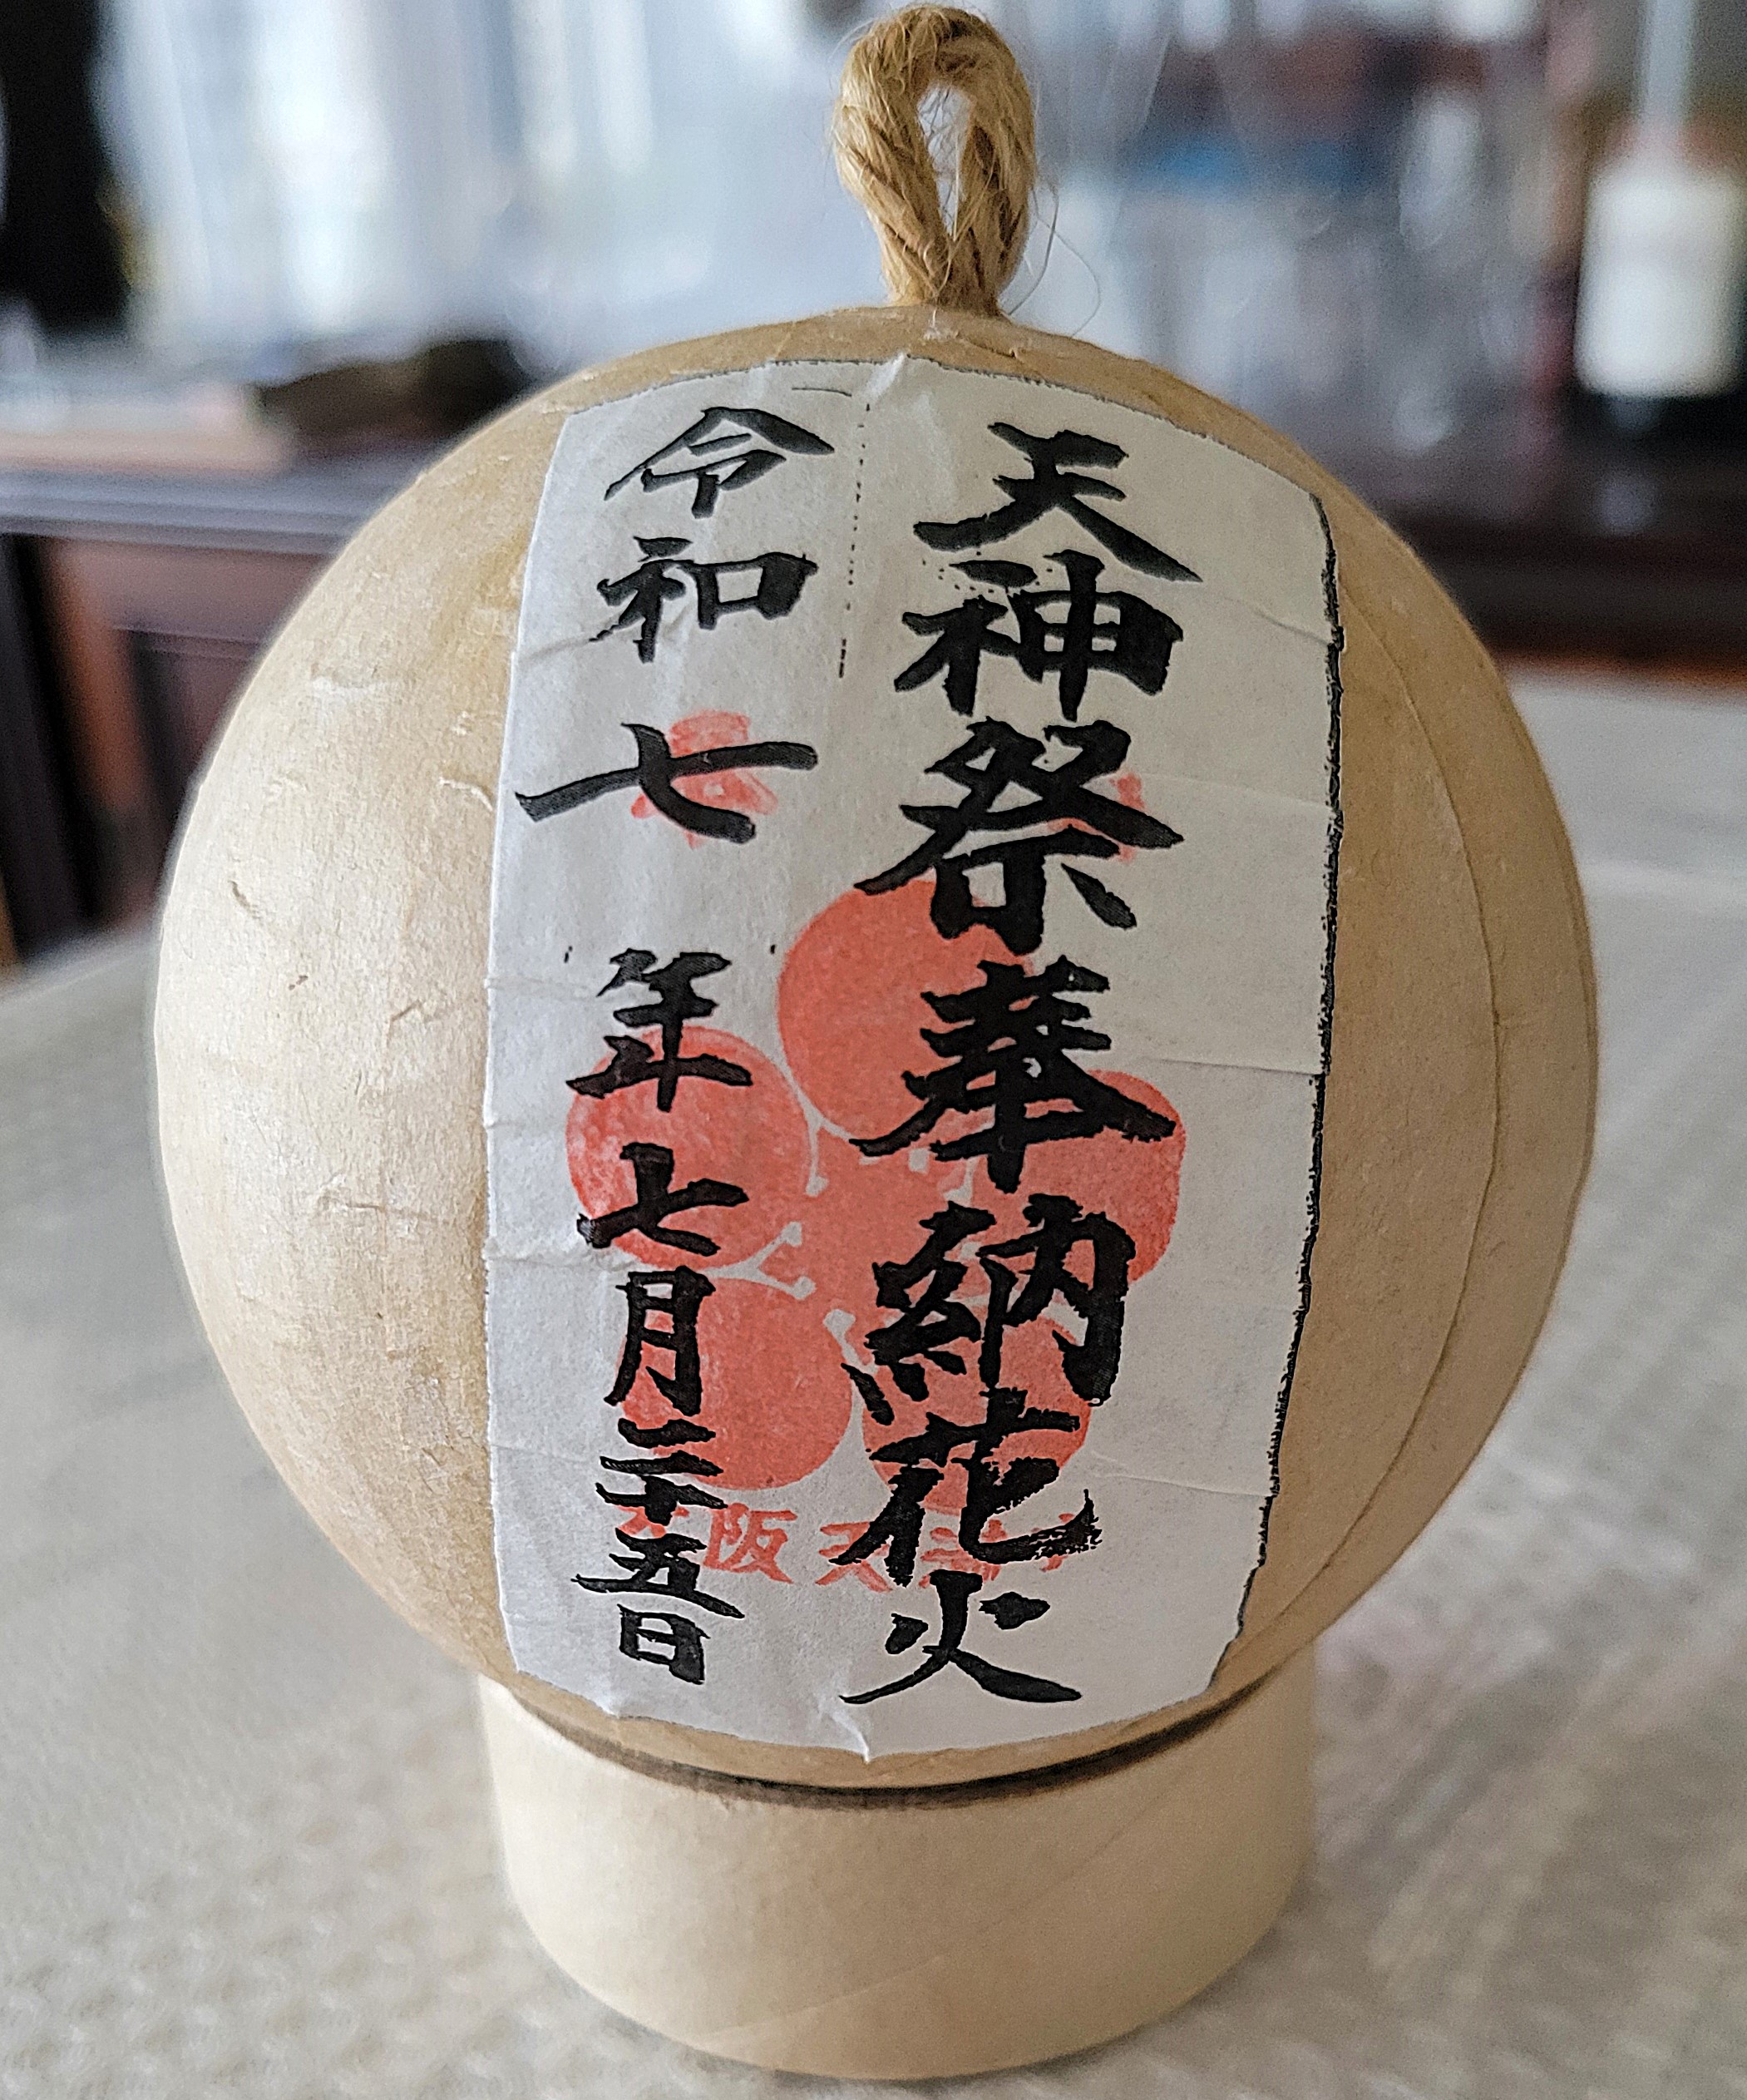 天神祭奉納花火
令和七年七月二十五日
大阪天満宮